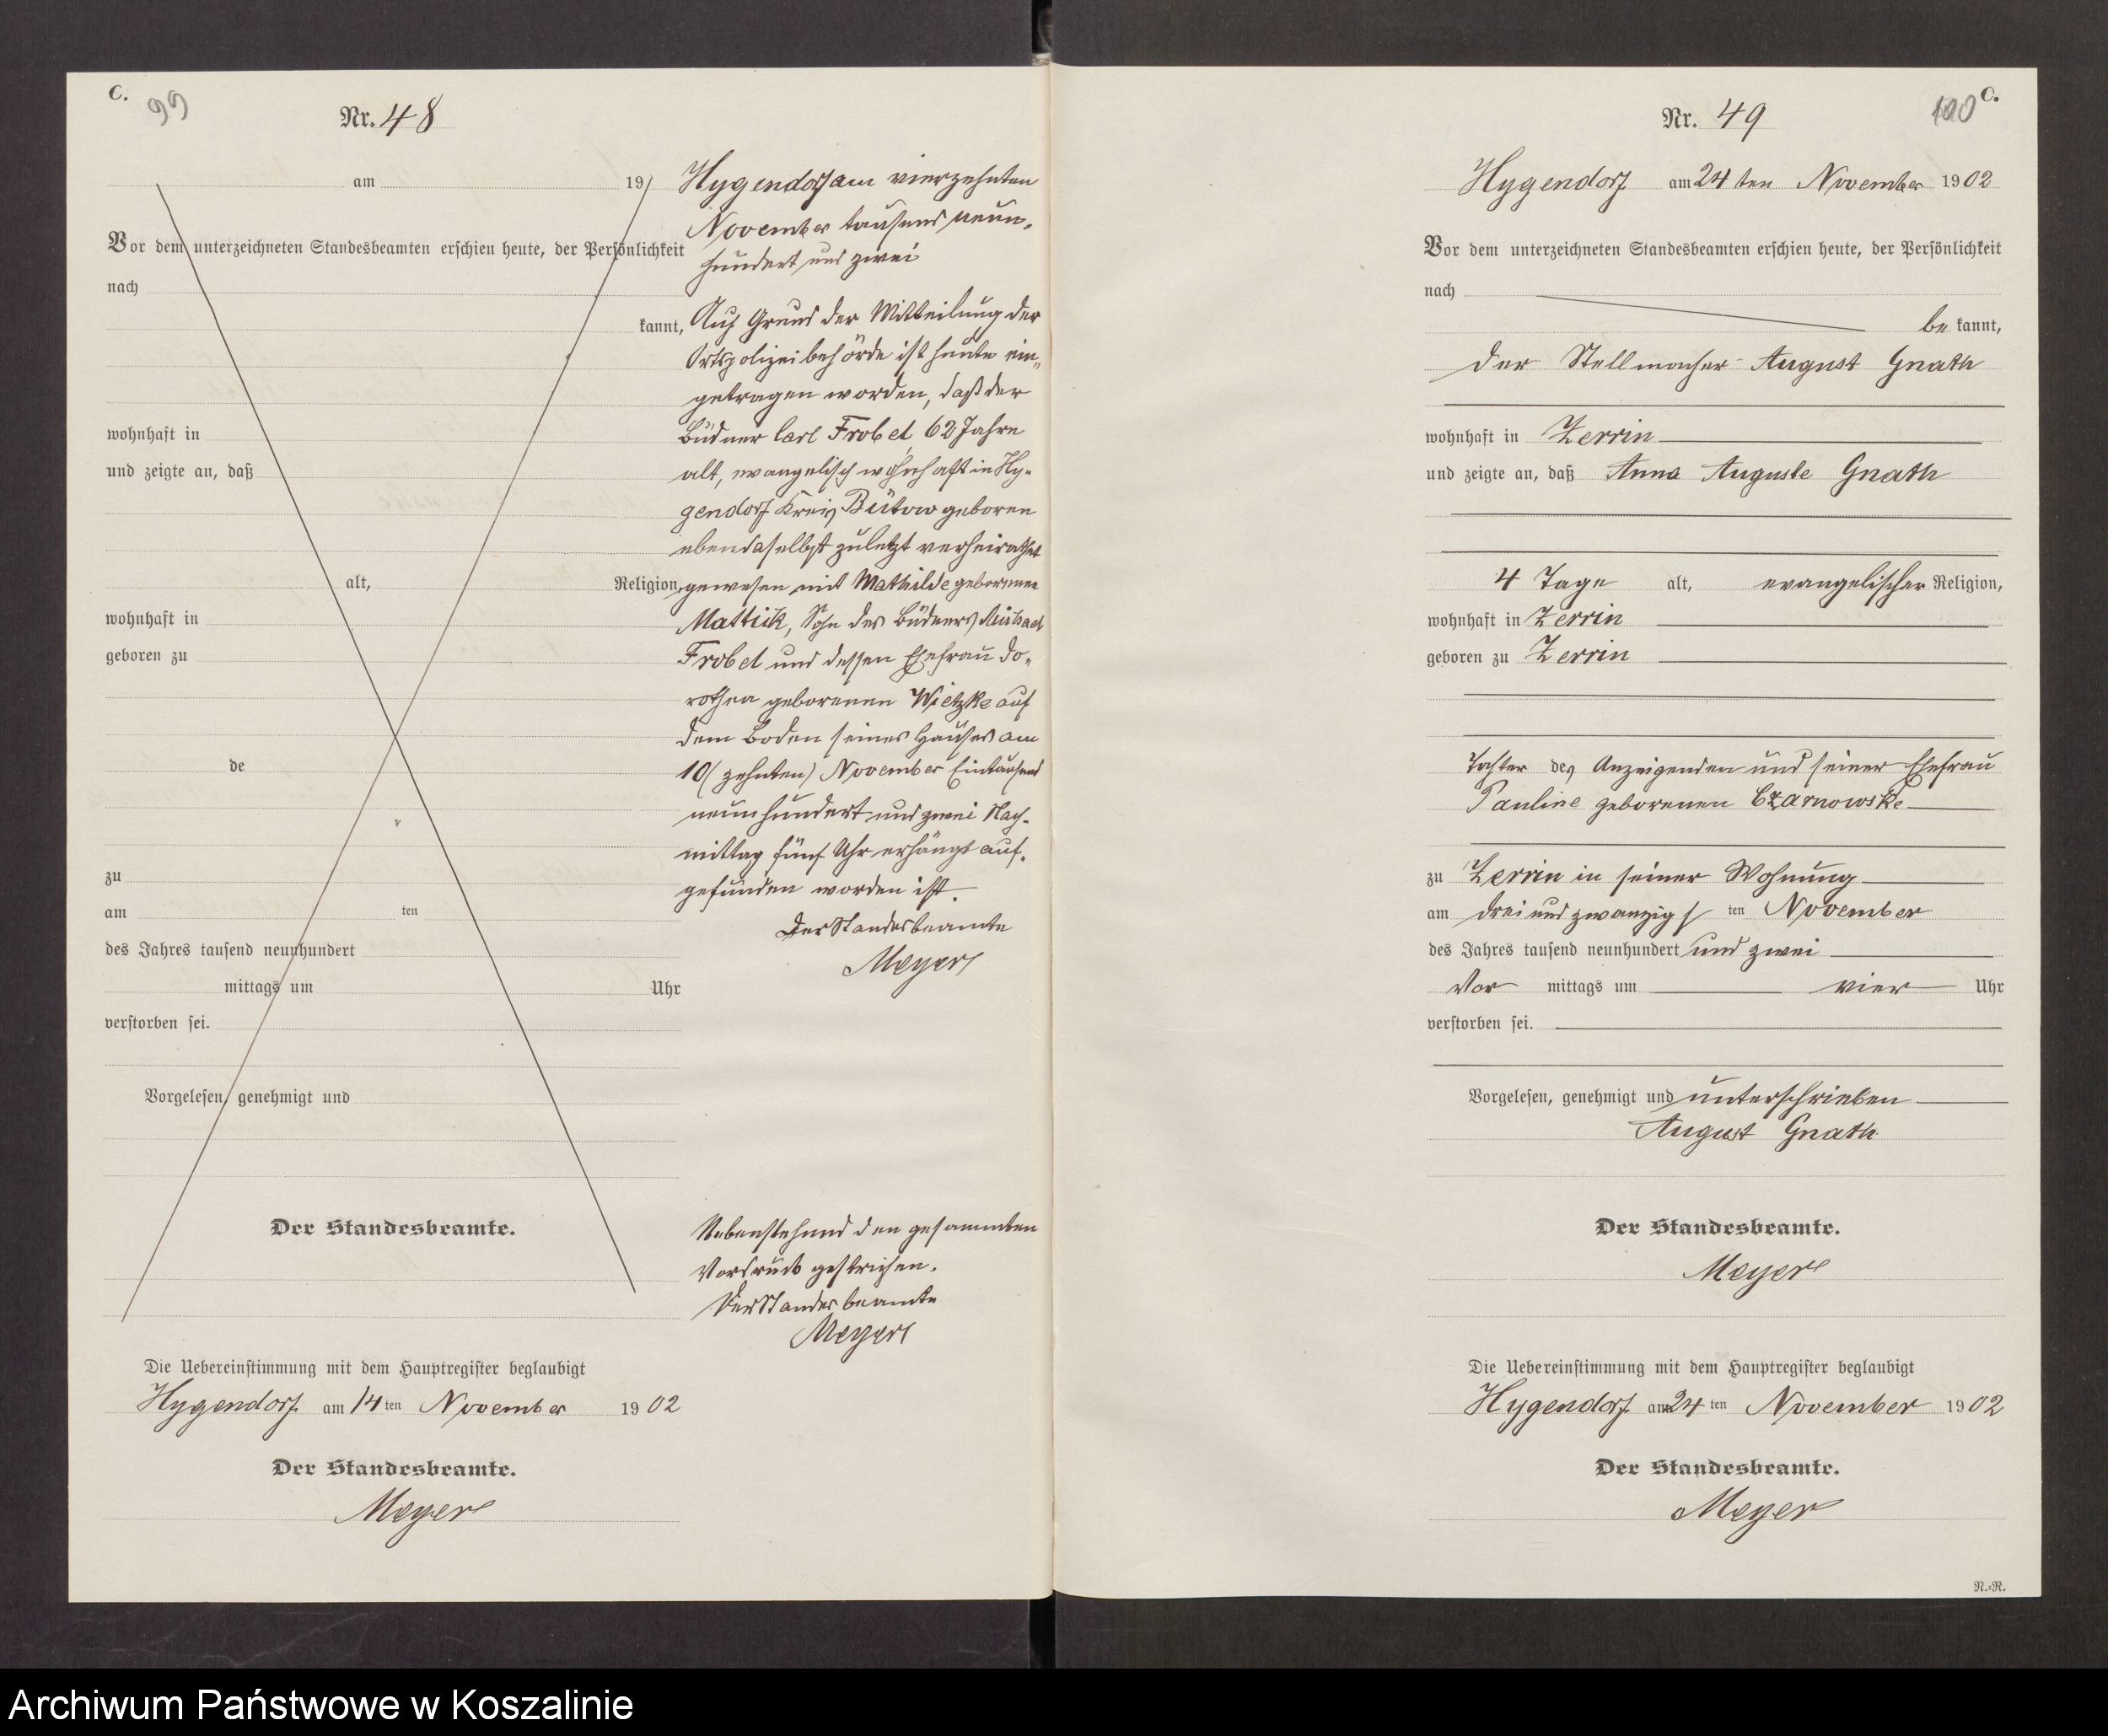 C.
99
Nr. 48
am 19
Vor dem unterzeichneten Standesbeamten erschien heute, der Persönlichkeit
nach
kannt,
wohnhaft in
und zeigte an, daß
alt, Religion,
wohnhaft in
geboren zu
de
zu
am ten
des Jahres tausend neunhundert
mittags um Uhr
verstorben sei.
Vorgelesen, genehmigt und
Der Standesbeamte.
Hygendorf am vierzehnten
November tausend neun-
hundert und zwei
Auf Grund der Mitteilung der
Ortspolizeibehörde ist heute ein-
getragen worden, daß der
Büdner Carl Frobel, 62 Jahre
alt, evangelisch wohnhaft in Hy-
gendorf Kreis Bütow geboren
ebendaselbst zuletzt verheirathet
gewesen mit Mathilde geborenen
Mattick, Sohn des Büdners
Frobel und dessen Ehefrau Do-
rothea geborenen Wietzke auf
dem Boden seines Hauses am
10 (zehnten) November Eintausend
neunhundert und zwei Nach-
mittag fünf Uhr erhängt auf-
gefunden worden ist.
Der Standesbeamte
Meyer
Nebenstehend den gesammten
Vordruck gestrichen.
Der Standesbeamte
Meyer
Die Uebereinstimmung mit dem Hauptregister beglaubigt
Hygendorf am 14 ten November 1902
Der Standesbeamte.
Meyer
C.
100
Nr. 49
Hygendorf am 24 ten November 1902
Vor dem unterzeichneten Standesbeamten erschien heute, der Persönlichkeit
nach
be kannt,
der Stellmacher August Gnath
wohnhaft in Zerrin
und zeigte an, daß Anna Auguste Gnath
4 Tage alt, evangelischer Religion,
wohnhaft in Zerrin
geboren zu Zerrin
Tochter des Anzeigenden und seiner Ehefrau
Pauline geborenen Czarnowske
zu Zerrin in seiner Wohnung
am drei und zwanzigs ten November
des Jahres tausend neunhundert und zwei
Vor mittags um vier Uhr
verstorben sei.
Vorgelesen, genehmigt und unterschrieben
August Gnath
Der Standesbeamte.
Meyer
Die Uebereinstimmung mit dem Hauptregister beglaubigt
Hygendorf am 24 ten November 1902
Der Standesbeamte.
Meyer
N.=R.
Archiwum Państwowe w Koszalinie